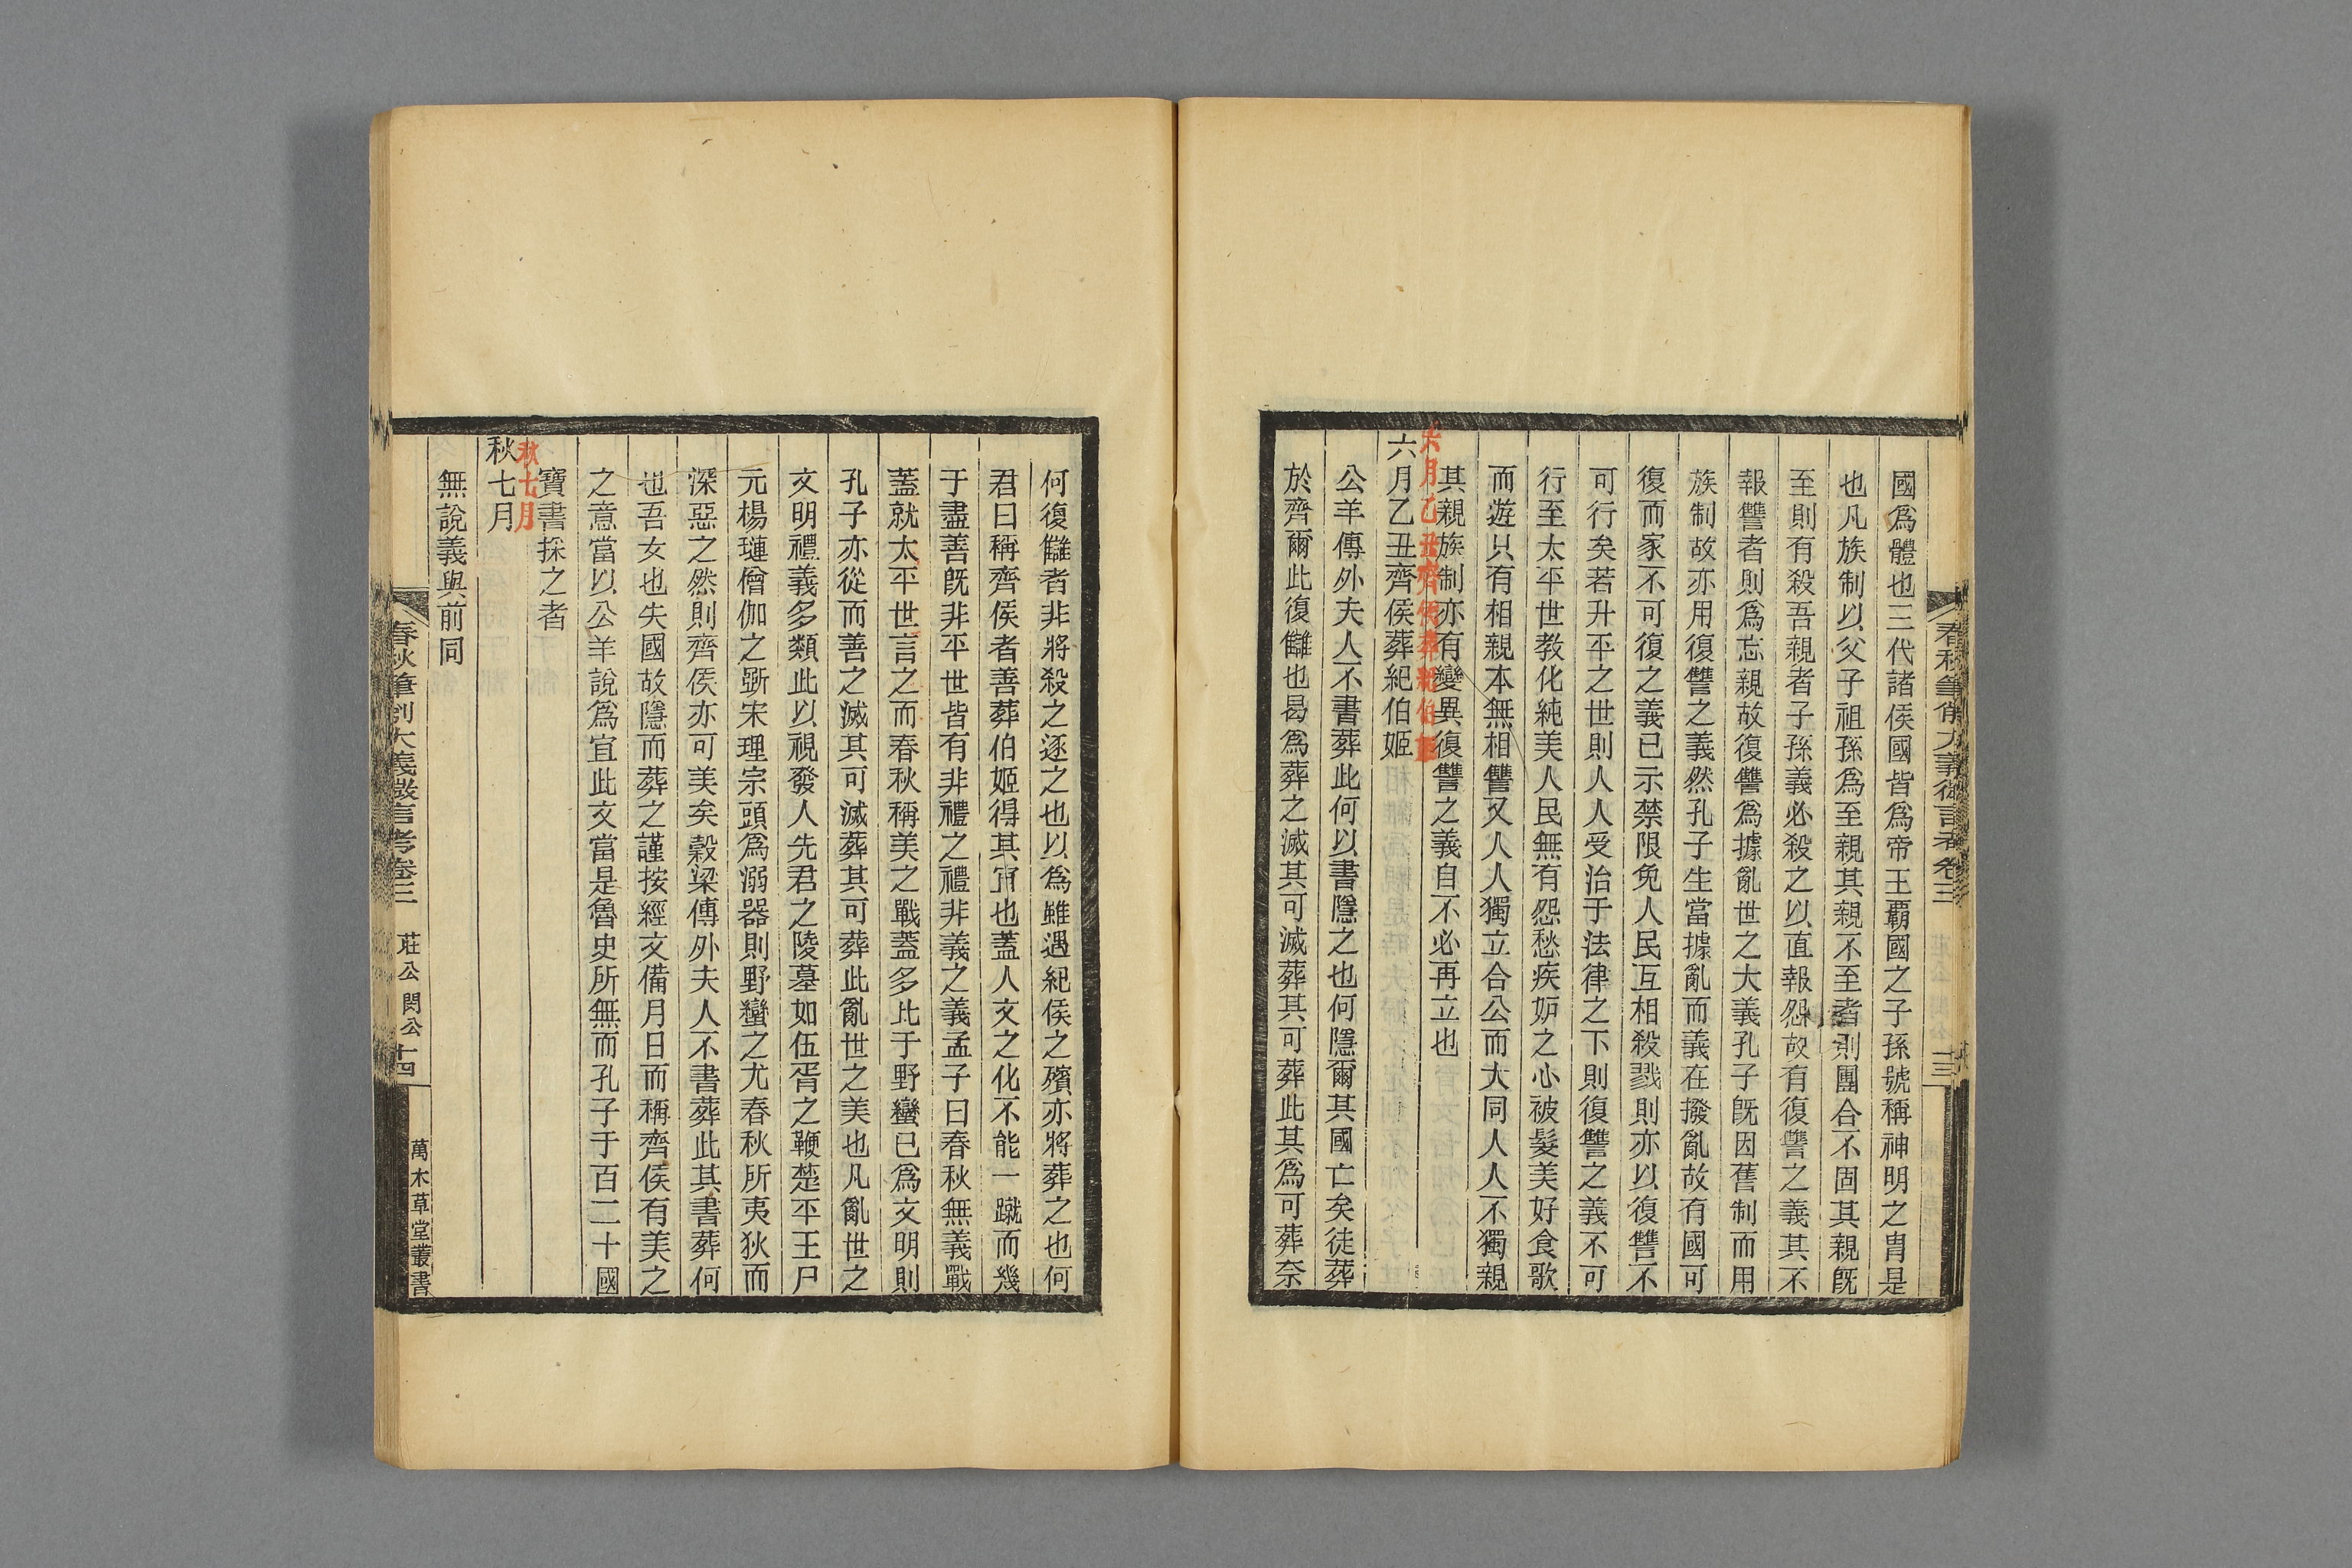 國爲體也三代諸侯國皆爲帝王覇國之子孫號稱神明之胄是
也凡族制以父子祖孫爲至親其親不至者則團合不固其親旣
至則有殺吾親者子孫義必殺之以直報怨故有復讐之義其不
報讐者則爲忘親故復讐爲據亂世之大義孔子旣因舊制而用
族制故亦用復讐之義然孔子生當據亂而義在撥亂故有國可
復而家不可復之義已示禁限免人民互相殺戮則亦以復讐不
可行矣若升平之世則人人受治于法律之下則復讐之義不可
行至太平世教化純美人民無有怨愁疾妒之心被髮美好食歌
而遊只有相親本無相讐又人人獨立合公而大同人人不獨親
其親族制亦有變異復讐之義自不必再立也
六月乙丑齊侯葬紀伯姬
六月乙丑齊侯葬紀伯姬
公羊傳外夫人不書葬此何以書隱之也何隱爾其國亡矣徒葬
於齊爾此復讎也曷爲葬之滅其可滅葬其可葬此其爲可葬奈
春秋筆削大義微言考卷三
何復讎者非將殺之逐之也以爲雖遇紀侯之殯亦將葬之也何
君曰稱齊侯者善葬伯姬得其宜也蓋人文之化不能一蹴而幾
于盡善旣非平世皆有非禮之禮非義之義孟子曰春秋無義戰
蓋就太平世言之而春秋稱美之戰蓋多比于野蠻已爲文明則
孔子亦從而善之滅其可滅葬其可葬此亂世之美也凡亂世之
文明禮義多類此以視發人先君之陵墓如伍胥之鞭楚平王尸
元楊璉僧伽之斲宋理宗頭爲溺器則野蠻之尤春秋所夷狄而
深惡之然則齊侯亦可美矣穀梁傳外夫人不書葬此其書葬何
也吾女也失國故隱而葬之謹按經文備月日而稱齊侯有美之
之意當以公羊說爲宜此文當是魯史所無而孔子于百二十國
寶書採之者
秋七月
秋七月
無說義與前同
春秋筆削大義微言考卷三 莊公 閔公 十四 萬木草堂叢書